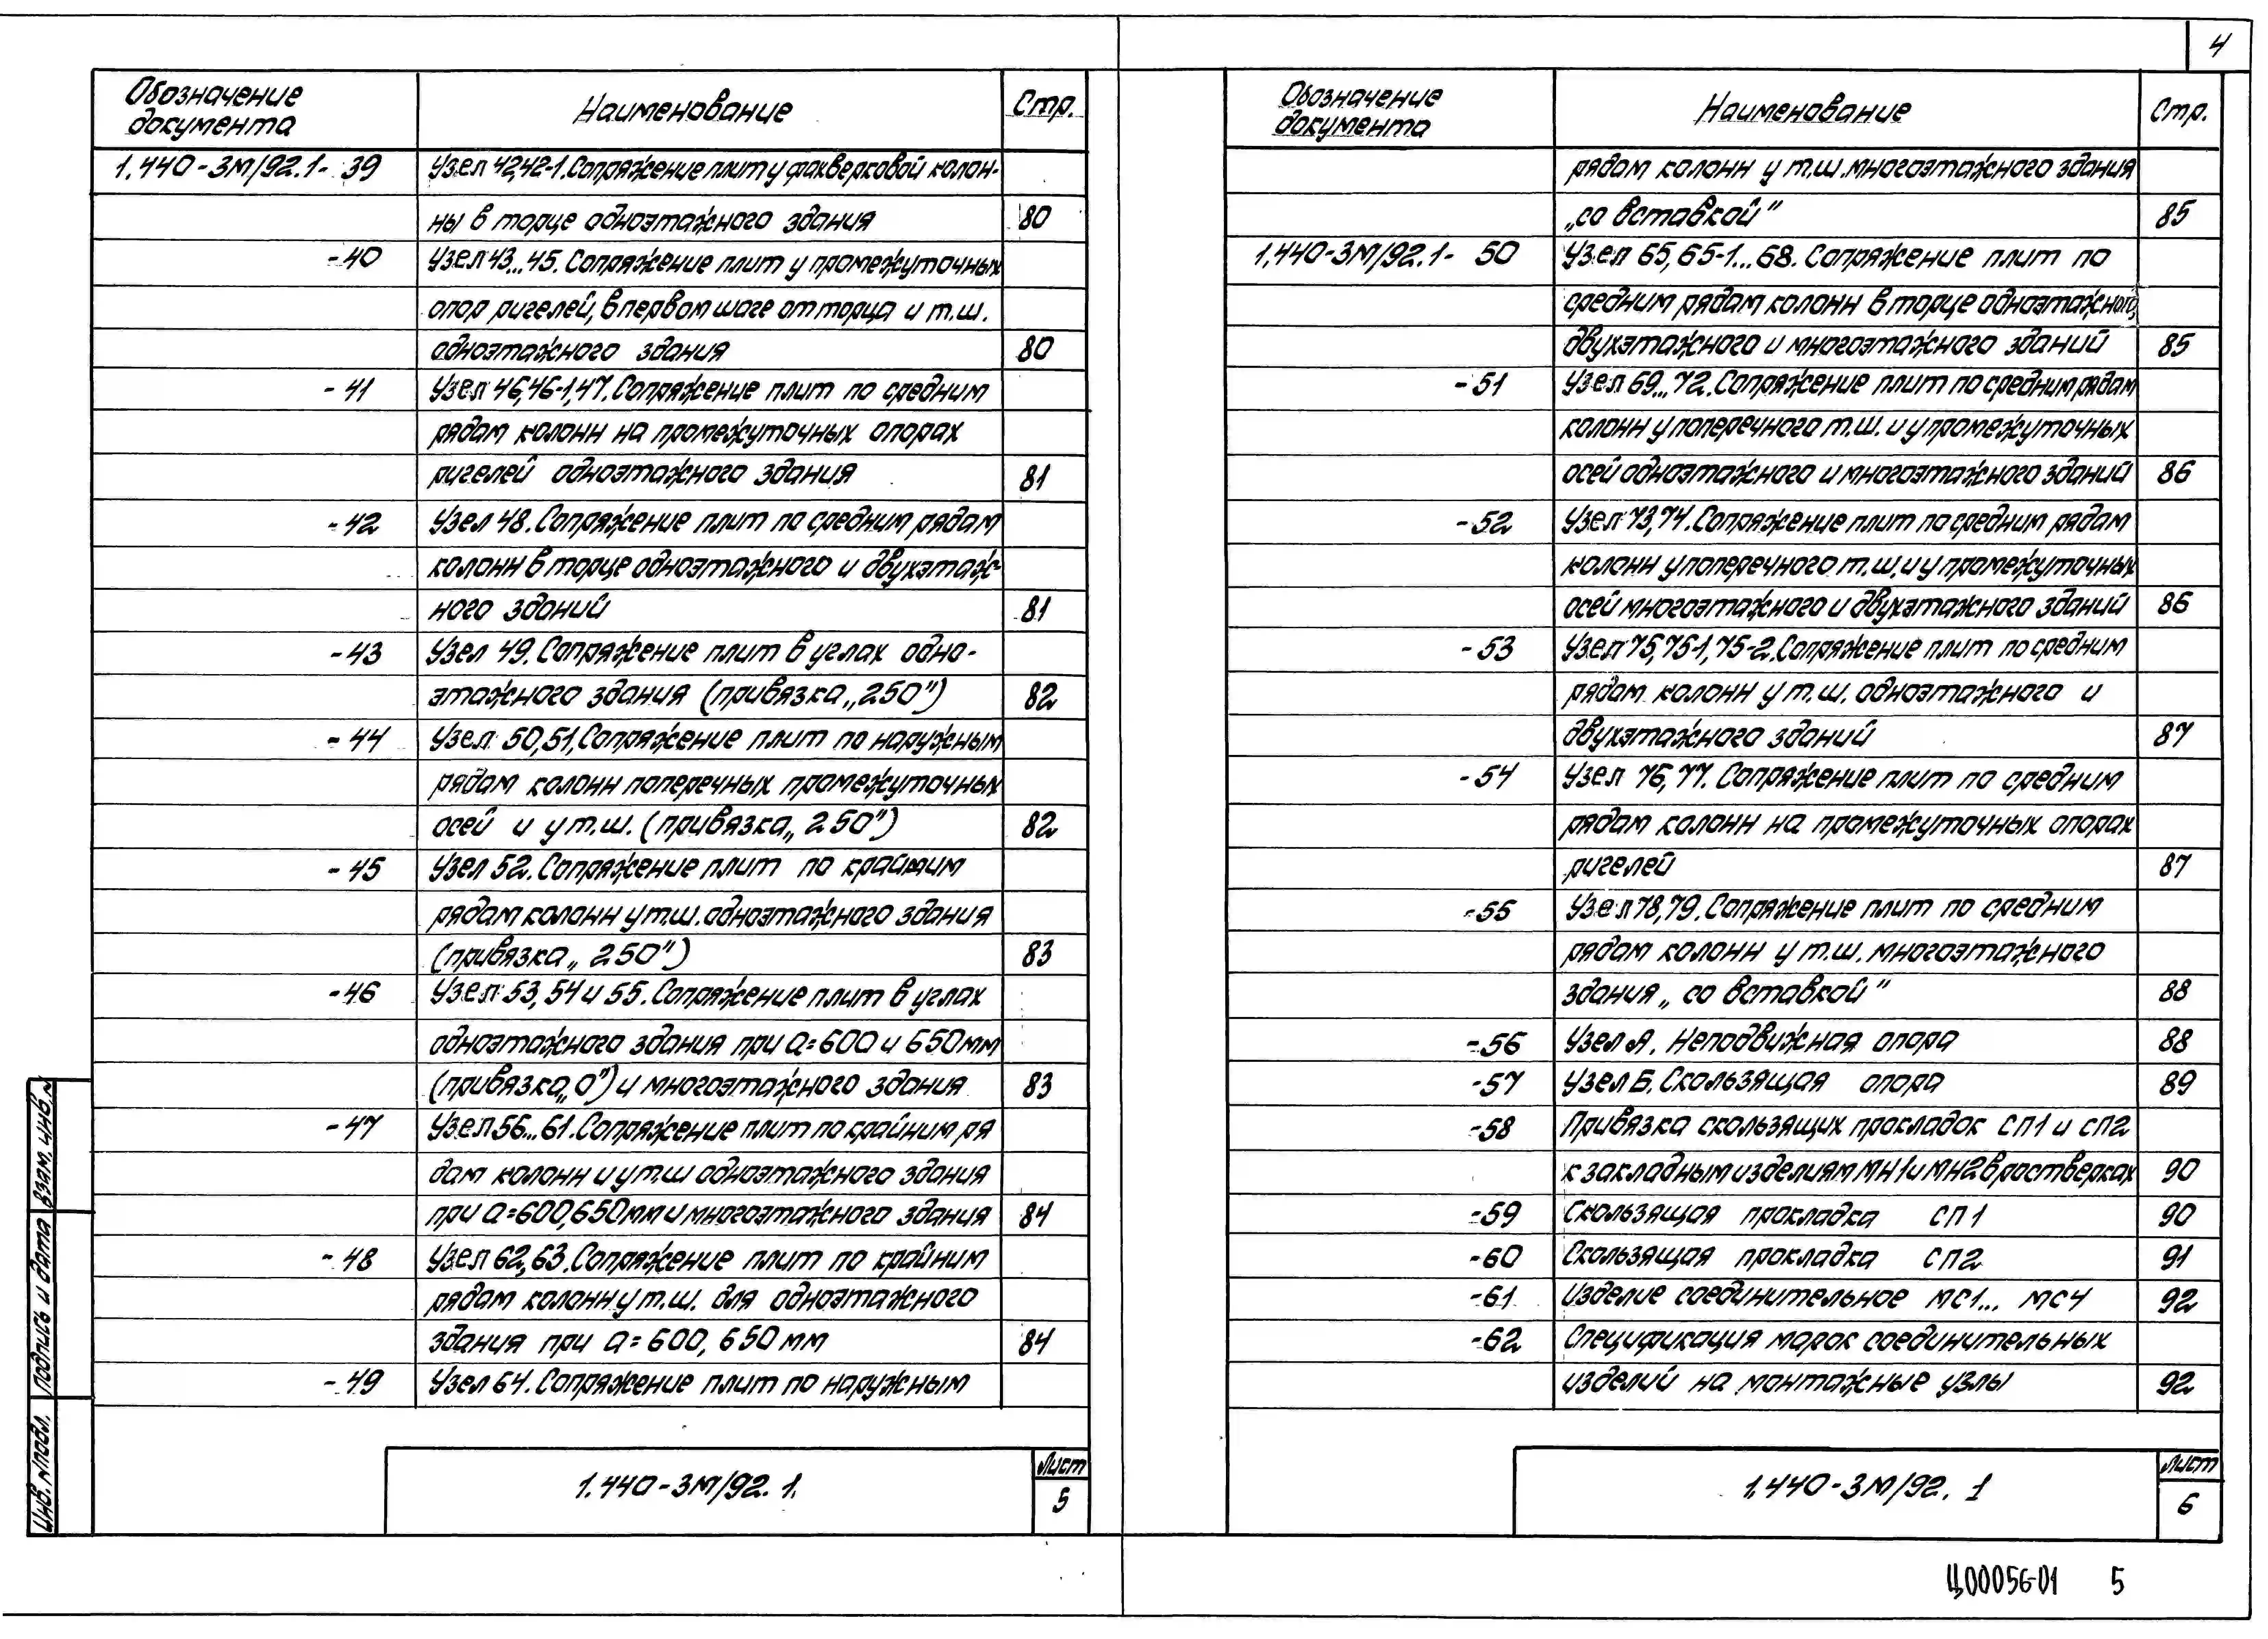 4
Обозначение документа Наименование Стр.
1.440-3М/92.1- 39 Узел 42,42-1. Сопряжение плит у фахверковой колон-
ны в торце одноэтажного здания 80
-40 Узел 43...45. Сопряжение плит у промежуточных
опор ригелей, в первом шаге от торца и т.ш.
одноэтажного здания 80
-41 Узел 46,46-1,47. Сопряжение плит по средним
рядам колонн на промежуточных опорах
ригелей одноэтажного здания 81
-42 Узел 48. Сопряжение плит по средним рядам
колонн в торце одноэтажного и двухэтаж-
ного зданий 81
-43 Узел 49. Сопряжение плит в углах одно-
этажного здания (привязка „250") 82
-44 Узел 50,51, Сопряжение плит по наружным
рядам колонн поперечных промежуточных
осей и у т.ш. (привязка „250") 82
-45 Узел 52. Сопряжение плит по крайним
рядам колонн у т.ш. одноэтажного здания
(привязка „250") 83
-46 Узел 53, 54 и 55. Сопряжение плит в углах
одноэтажного здания при а=600 и 650мм
(привязка „0") и многоэтажного здания 83
-47 Узел 56...61. Сопряжение плит по крайним ря
дам колонн и у т.ш одноэтажного здания
при а=600,650мм и многоэтажного здания 84
-48 Узел 62,63. Сопряжение плит по крайним
рядам колонн у т.ш. для одноэтажного
здания при а=600, 650мм 84
-49 Узел 64. Сопряжение плит по наружным
1.440-3М/92. 1. Лист 5
Инв. № подл. Подпись и дата Взам. инв. №
Обозначение документа Наименование Стр.
рядам колонн у т.ш. многоэтажного здания
„со вставкой" 85
1.440-3М/92.1- 50 Узел 65, 65-1...68. Сопряжение плит по
средним рядам колонн в торце одноэтажного,
двухэтажного и многоэтажного зданий 85
-51 Узел 69...72. Сопряжение плит по средним рядам
колонн у поперечного т.ш. и у промежуточных
осей одноэтажного и многоэтажного зданий 86
-52 Узел 73,74. Сопряжение плит по средним рядам
колонн у поперечного т.ш. и у промежуточных
осей многоэтажного и двухэтажного зданий 86
-53 Узел 75,75-1,75-2. Сопряжение плит по средним
рядам колонн у т.ш. одноэтажного и
двухэтажного зданий 87
-54 Узел 76, 77. Сопряжение плит по средним
рядам колонн на промежуточных опорах
ригелей 87
-55 Узел 78,79. Сопряжение плит по средним
рядам колонн у т.ш. многоэтажного
здания „со вставкой" 88
-56 Узел А. Неподвижная опора 88
-57 Узел Б. Скользящая опора 89
-58 Привязка скользящих прокладок СП1 и СП2
к закладным изделиям МН1 и МН2 в ростверках 90
-59 Скользящая прокладка СП1 90
-60 Скользящая прокладка СП2 91
-61 Изделие соединительное МС1... МС4 92
-62 Спецификация марок соединительных
изделий на монтажные узлы 92
1.440-3М/92. 1 Лист 6
Ц00056-01 5